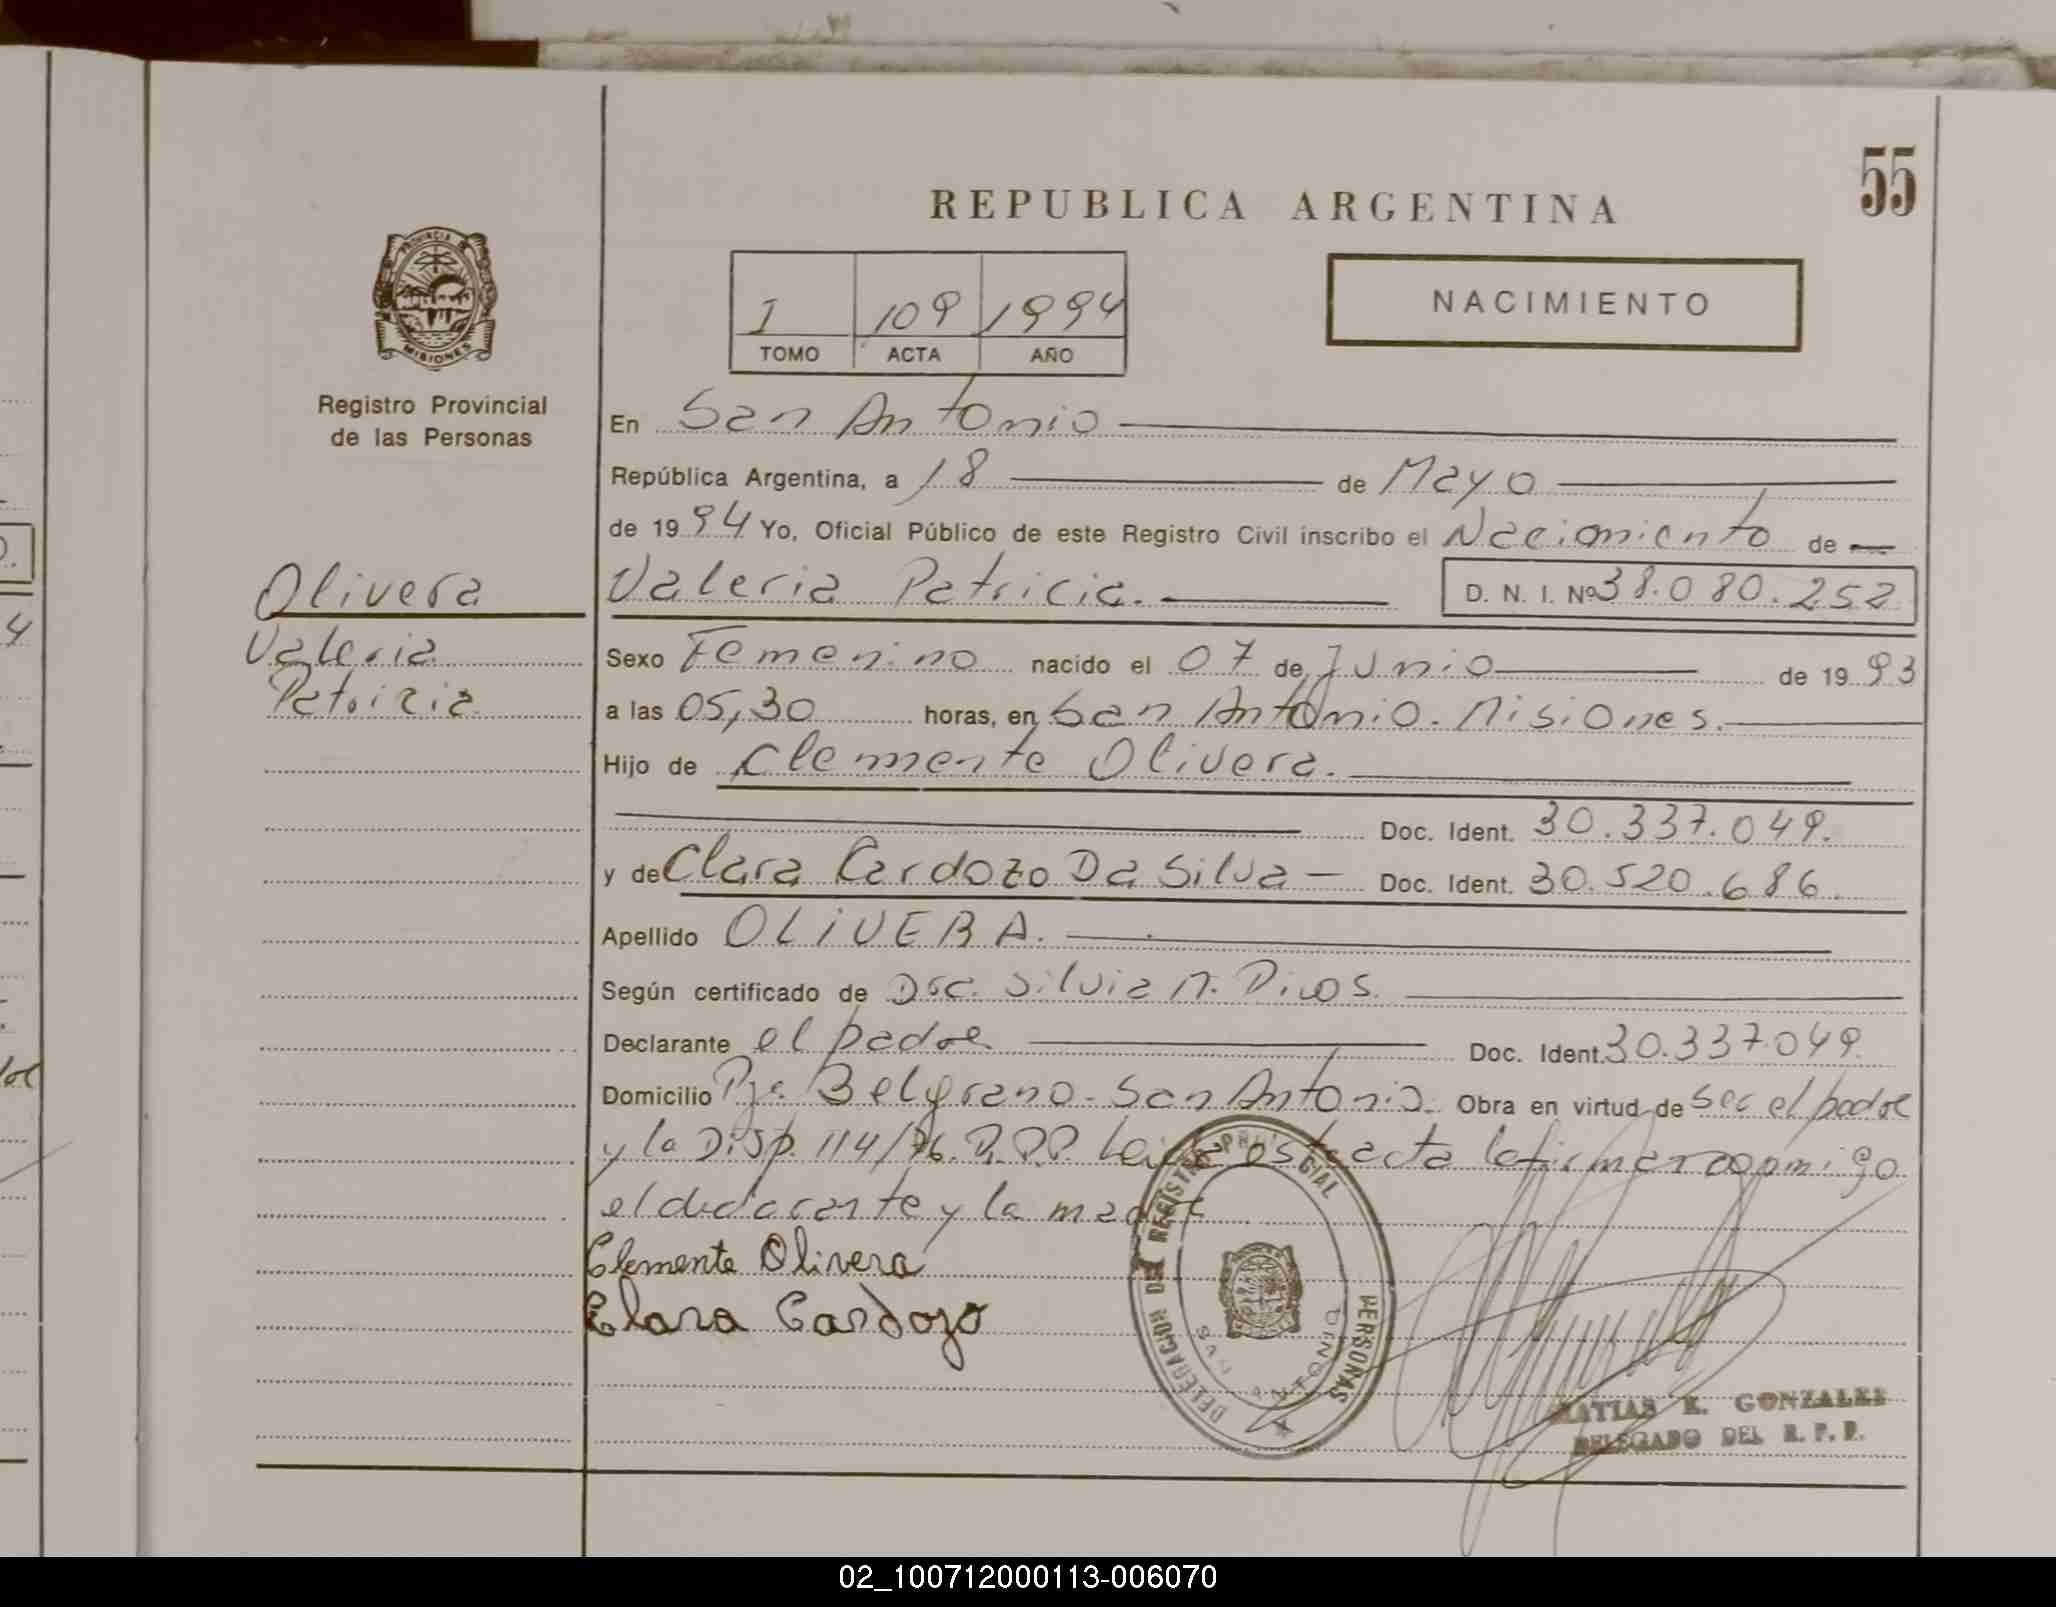 55
REPUBLICA ARGENTINA
PROVINCIA DE
MISIONES
Registro Provincial
de las Personas
I 109 1994
TOMO ACTA AÑO
NACIMIENTO
En San Antonio
República Argentina, a 18 de Mayo
de 1994 Yo, Oficial Público de este Registro Civil inscribo el Nacimiento de
Olivera
Valeria
Patricia
Valeria Patricia. D. N. I. Nº 38.080.252
Sexo Femenino nacido el 07 de Junio de 1993
a las 05,30 horas, en San Antonio. Misiones.
Hijo de Clemente Olivera.
Doc. Ident. 30.337.049.
y de Clara Cardozo Da Silva Doc. Ident. 30.520.686.
Apellido OLIVERA.
Según certificado de Dra. Silvia
Declarante el padre Doc. Ident. 30.337.049.
Domicilio Pje. Belgrano - San Antonio. Obra en virtud de ser el padre
y la Disp. 114/76. Leída esta acta la firman conmigo
el declarante y la madre
Clemente Olivera
Clara Cardozo
DELEGACION DEL REGISTRO PROVINCIAL PERSONAS
SAN ANTONIO
MATIAS E. GONZALEZ
DELEGADO DEL R. P. P.
02_100712000113-006070